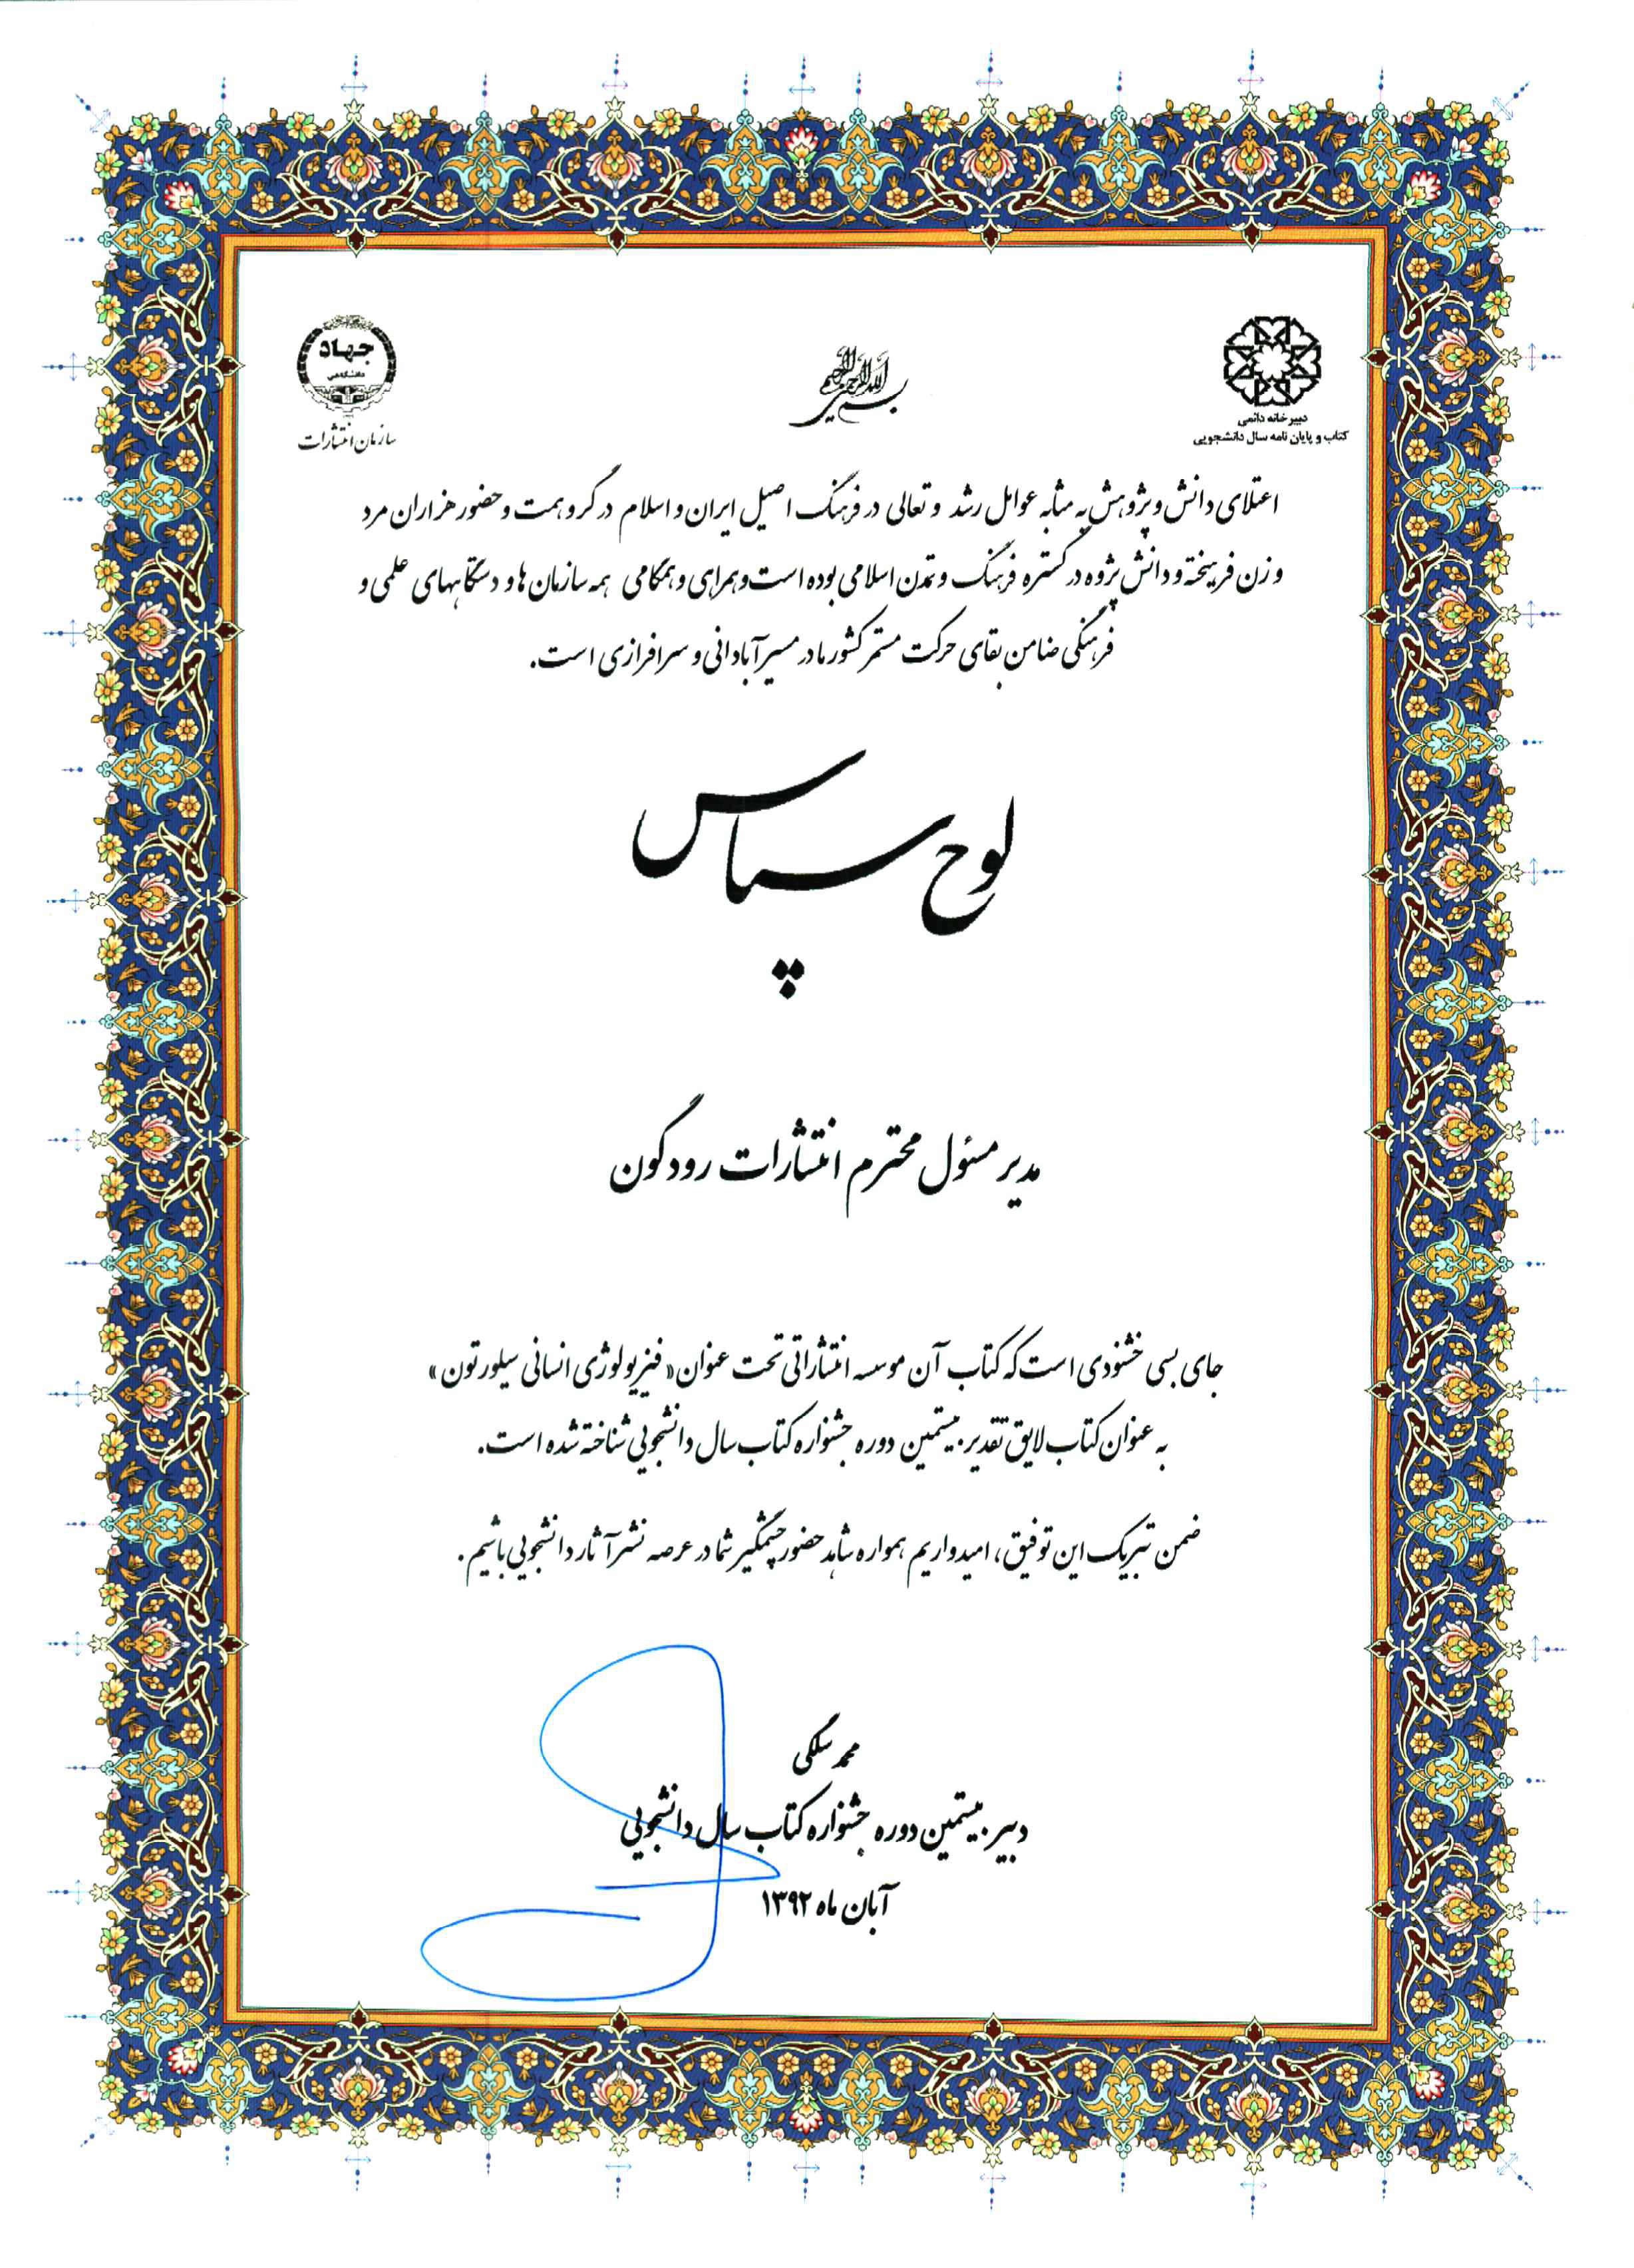 بسم الله الرحمن الرحیم
دبیرخانه دائمی
کتاب و پایان نامه سال دانشجویی
جهاد
دانشگاهی
سازمان انتشارات
اعتلای دانش و پژوهش به مثابه عوامل رشد و تعالی در فرهنگ اصیل ایران و اسلام در گرو همت و حضور هزاران مرد
و زن فریخته و دانش پژوه در گستره فرهنگ و تمدن اسلامی بوده است و همراهی و همگامی همه سازمان ها و دستگاههای علمی و
فرهنگی ضامن بقای حرکت مستمر کشور ما در مسیر آبادانی و سرافرازی است.
لوح سپاس
مدیر مسئول محترم انتشارات رودگون
جای بسی خشنودی است که کتاب آن موسسه انتشاراتی تحت عنوان «فیزیولوژی انسانی سیلورتون»
به عنوان کتاب لایق تقدیر بیستمین دوره جشنواره کتاب سال دانشجویی شناخته شده است.
ضمن تبریک این توفیق، امیدواریم همواره شاهد حضور چشمگیر شما در عرصه نشر آثار دانشجویی باشیم.
محمد سلگی
دبیر بیستمین دوره جشنواره کتاب سال دانشجویی
آبان ماه ۱۳۹۲